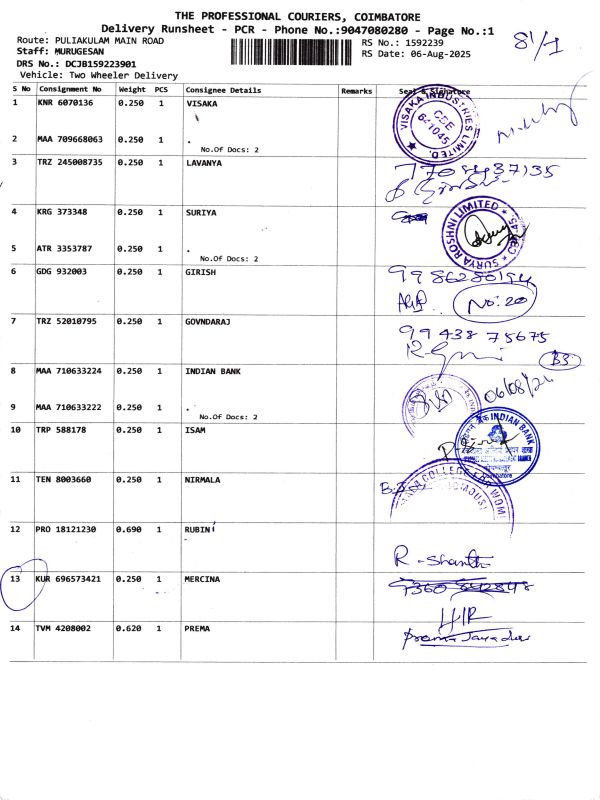 THE PROFESSIONAL COURIERS, COIMBATORE
Delivery Runsheet - PCR - Phone No.:9047080280 - Page No.:1
Route: PULIAKULAM MAIN ROAD
RS No.: 1592239
Staff: MURUGESAN
RS Date: 06-Aug-2025
DRS No.: DCJB159223901
Vehicle: Two Wheeler Delivery
S No Consignment No Weight PCS Consignee Details Remarks Seal & Signature
1 KNR 6070136 0.250 1 VISAKA
VISAKA INDUSTRIES LIMITED. CBE 641045
2 MAA 709668063 0.250 1 .
No.Of Docs: 2
3 TRZ 245008735 0.250 1 LAVANYA
4 KRG 373348 0.250 1 SURIYA
SURYA ROSHNI LIMITED
5 ATR 3353787 0.250 1 .
No.Of Docs: 2
6 GDG 932003 0.250 1 GIRISH
No: 20
7 TRZ 52010795 0.250 1 GOVNDARAJ
99438 75675
B3
8 MAA 710633224 0.250 1 INDIAN BANK
9 MAA 710633222 0.250 1 .
No.Of Docs: 2
INDIAN BANK
10 TRP 588178 0.250 1 ISAM
11 TEN 8003660 0.250 1 NIRMALA
COLLEGE FOR WOM
12 PRO 18121230 0.690 1 RUBINi
R - Shanthi
13 KUR 696573421 0.250 1 MERCINA
14 TVM 4208002 0.620 1 PREMA